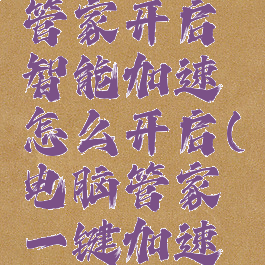 管家开启
智能加速
怎么开启(
电脑管家
一键加速